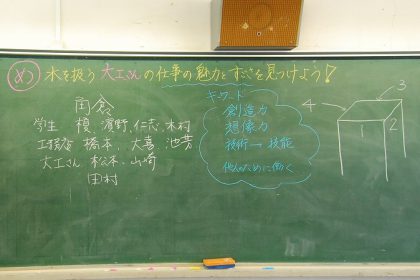 め 木を扱う大工さんの仕事の魅力とすごさを見つけよう！
角倉
学生 榎、濱野、仁志、木村
工務店 橋本、大喜、池芳
大工さん 松本、山崎
田村
キーワード
創造力
想像力
技術→技能
他人のために働く
3
4
1
2